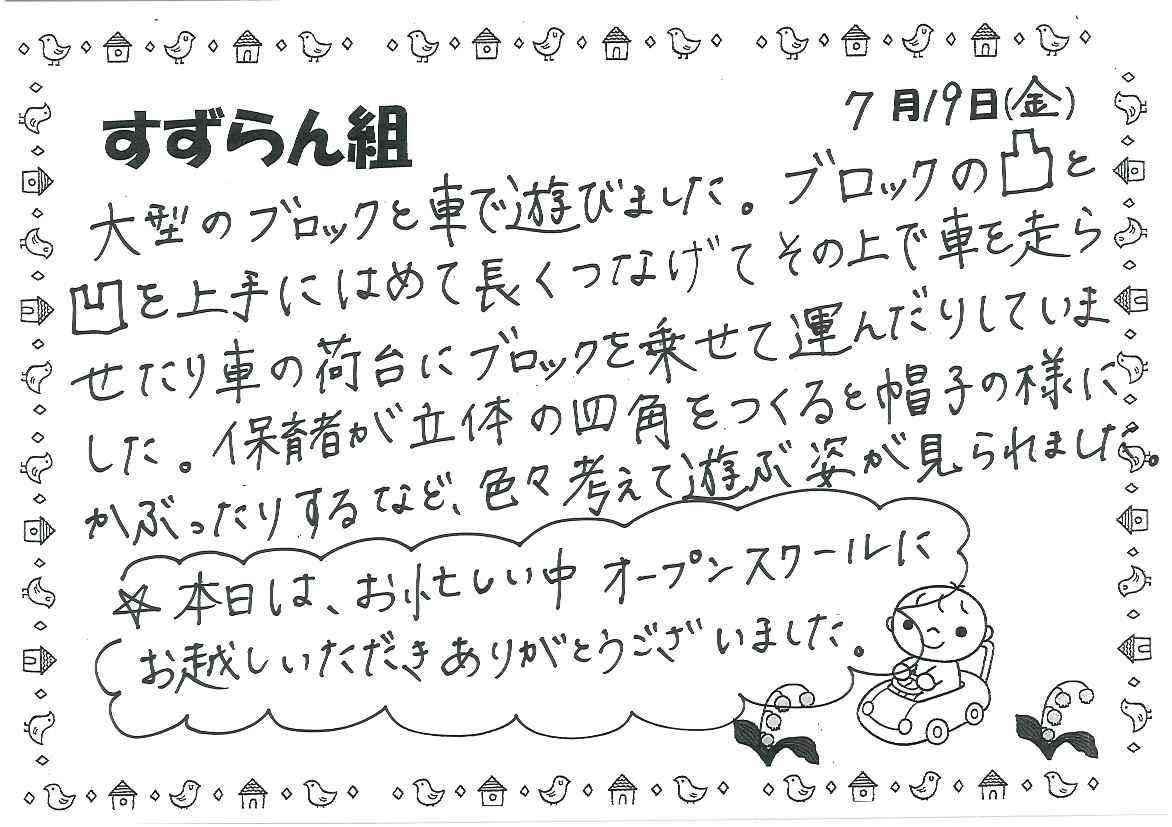 すずらん組
7月19日(金)
大型のブロックと車で遊びました。ブロックの凸と
凹を上手にはめて長くつなげてその上で車を走ら
せたり車の荷台にブロックを乗せて運んだりしていま
した。保育者が立体の四角をつくると帽子の様に
かぶったりするなど、色々考えて遊ぶ姿が見られました。
☆本日は、お忙しい中 オープンスクールに
お越しいただきありがとうございました。